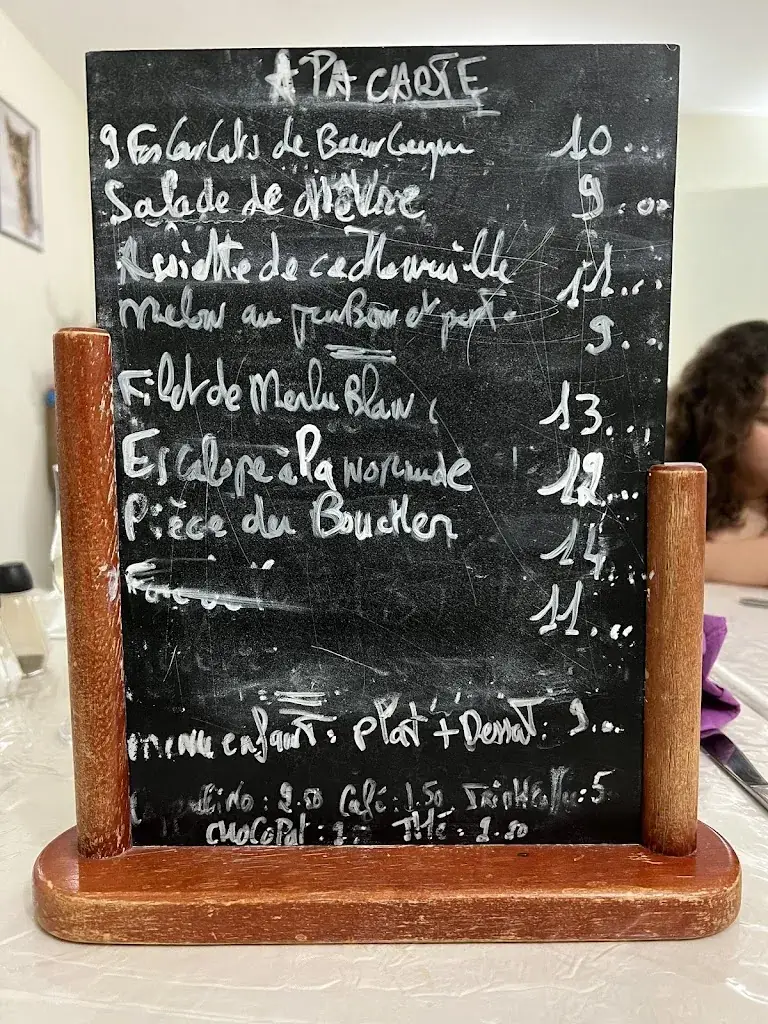 A LA CARTE
9 Escargots de Bourgogne 10..
Salade de chèvre 9...
Assiette de cochonnaille 11...
Melon au jambon et porto 9..
Filet de Merlu Blanc 13...
Escalope à la normande 12...
Pièce du Boucher 14...
11...
menu enfant : plat + Dessert : 9...
Cappuccino : 2.50 Café : 1.50 5
CHOCOLAT : Thé :